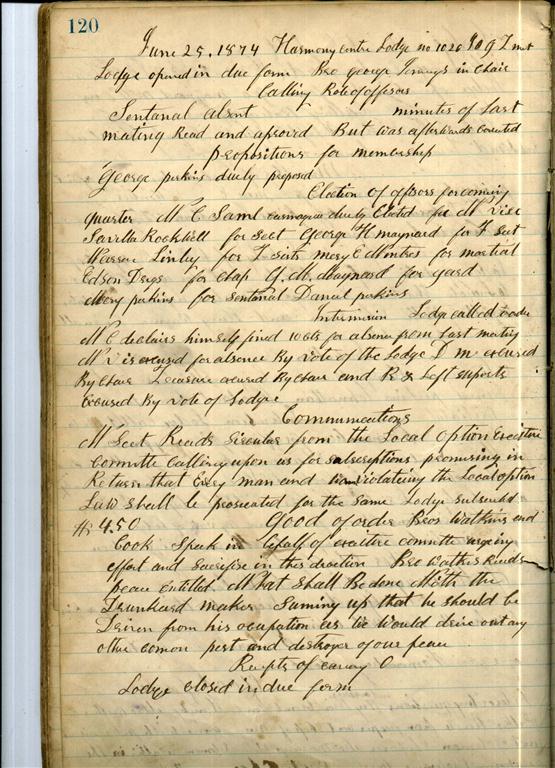 120
June 25, 1874 Harmony Centre Lodge no 1020 I O G T met
Lodge opened in due form Bro george Jennys in Chair
Calling Role of offisors
Sentanal absent minutes of Last
mating Read and aproved But was afterwards corected
propositions for membership
George perkins duely proposed
Election of offisors for coming
quarter W C Saml duely Elected for W vise
Savilla Rockwell for Sect George H maynard for F Sect
Warren Linley for T Mery E for martial
Edson Deys for Chap G. M. Maynard for gard
Mery perkins for Sentanal Daniel perkins
Intermision Lodge called to order
W C declairs himself fined 10 cts for absence from Last meeting
W V is excused for absence By vote of the Lodge D M excused
By chair Treasure excused By chair and R & Left suports
excused By vote of Lodge
Communications
W Sect Reads sircular from the Local Option Executive
Committe Calling upon us for subscriptions promising in
Return that Every man and violateing the Local option
Law Shall be prosecuted for the same Lodge
4.50 Good of order Bros Watkins and
Cook Speak in behalf of exective committe urgeing
effort and sacrefise in this direction Bro Watkis Reads
peace entitled What Shall Be done With the
Drunkard maker Suming up that he should be
Driven from his ocupation as we would drive out any
other comon pest and destroyer of our peace
Recipts of evening 0
Lodge closed in due form